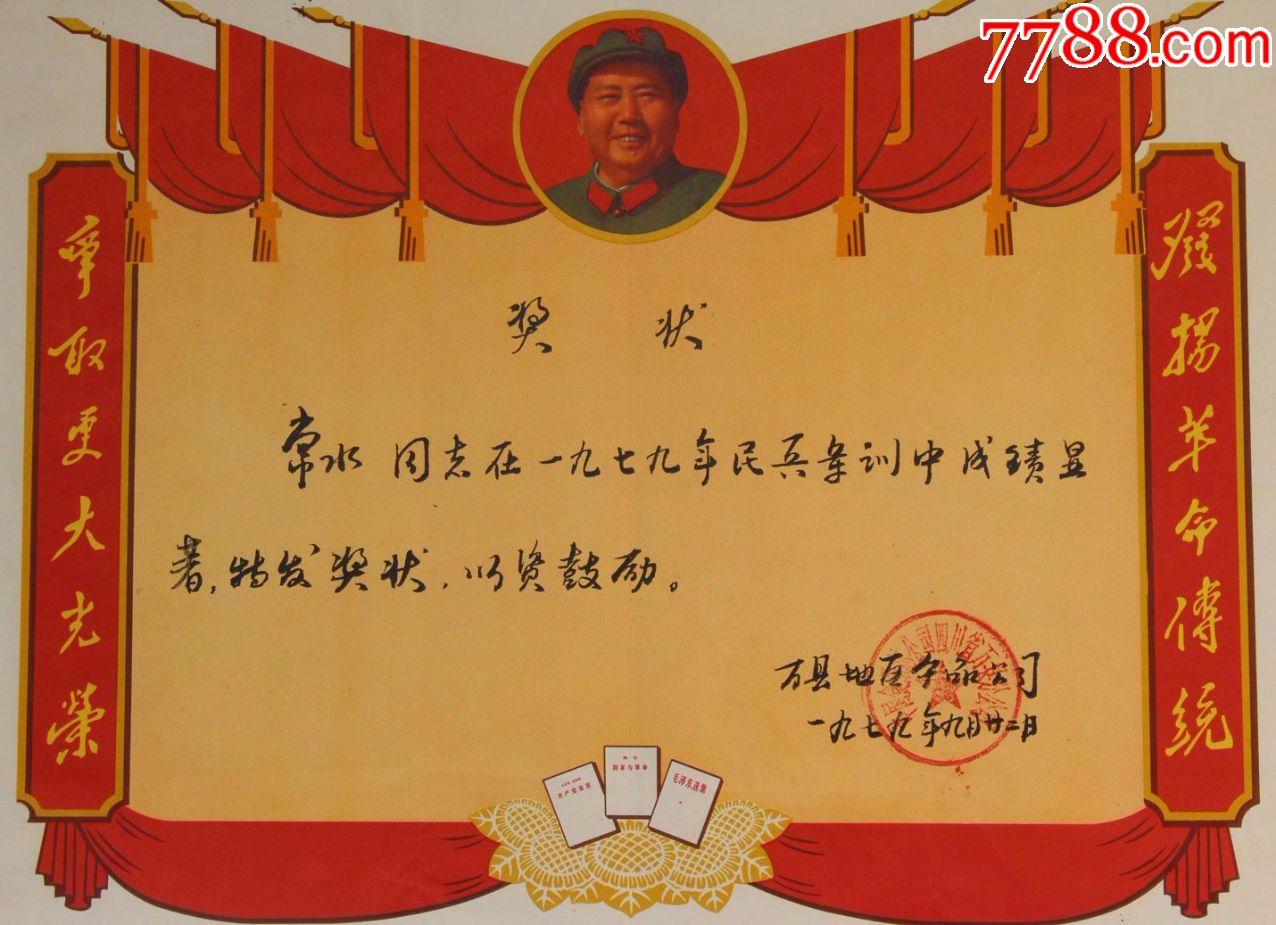 7788.com
發揚革命傳統
爭取更大光榮
奖状
常水 同志在一九七九年民兵集训中成绩显
著,特发奖状,以资鼓励。
万县地区食品公司
一九七九年九月廿二日
共产党宣言
国家与革命
毛泽东选集